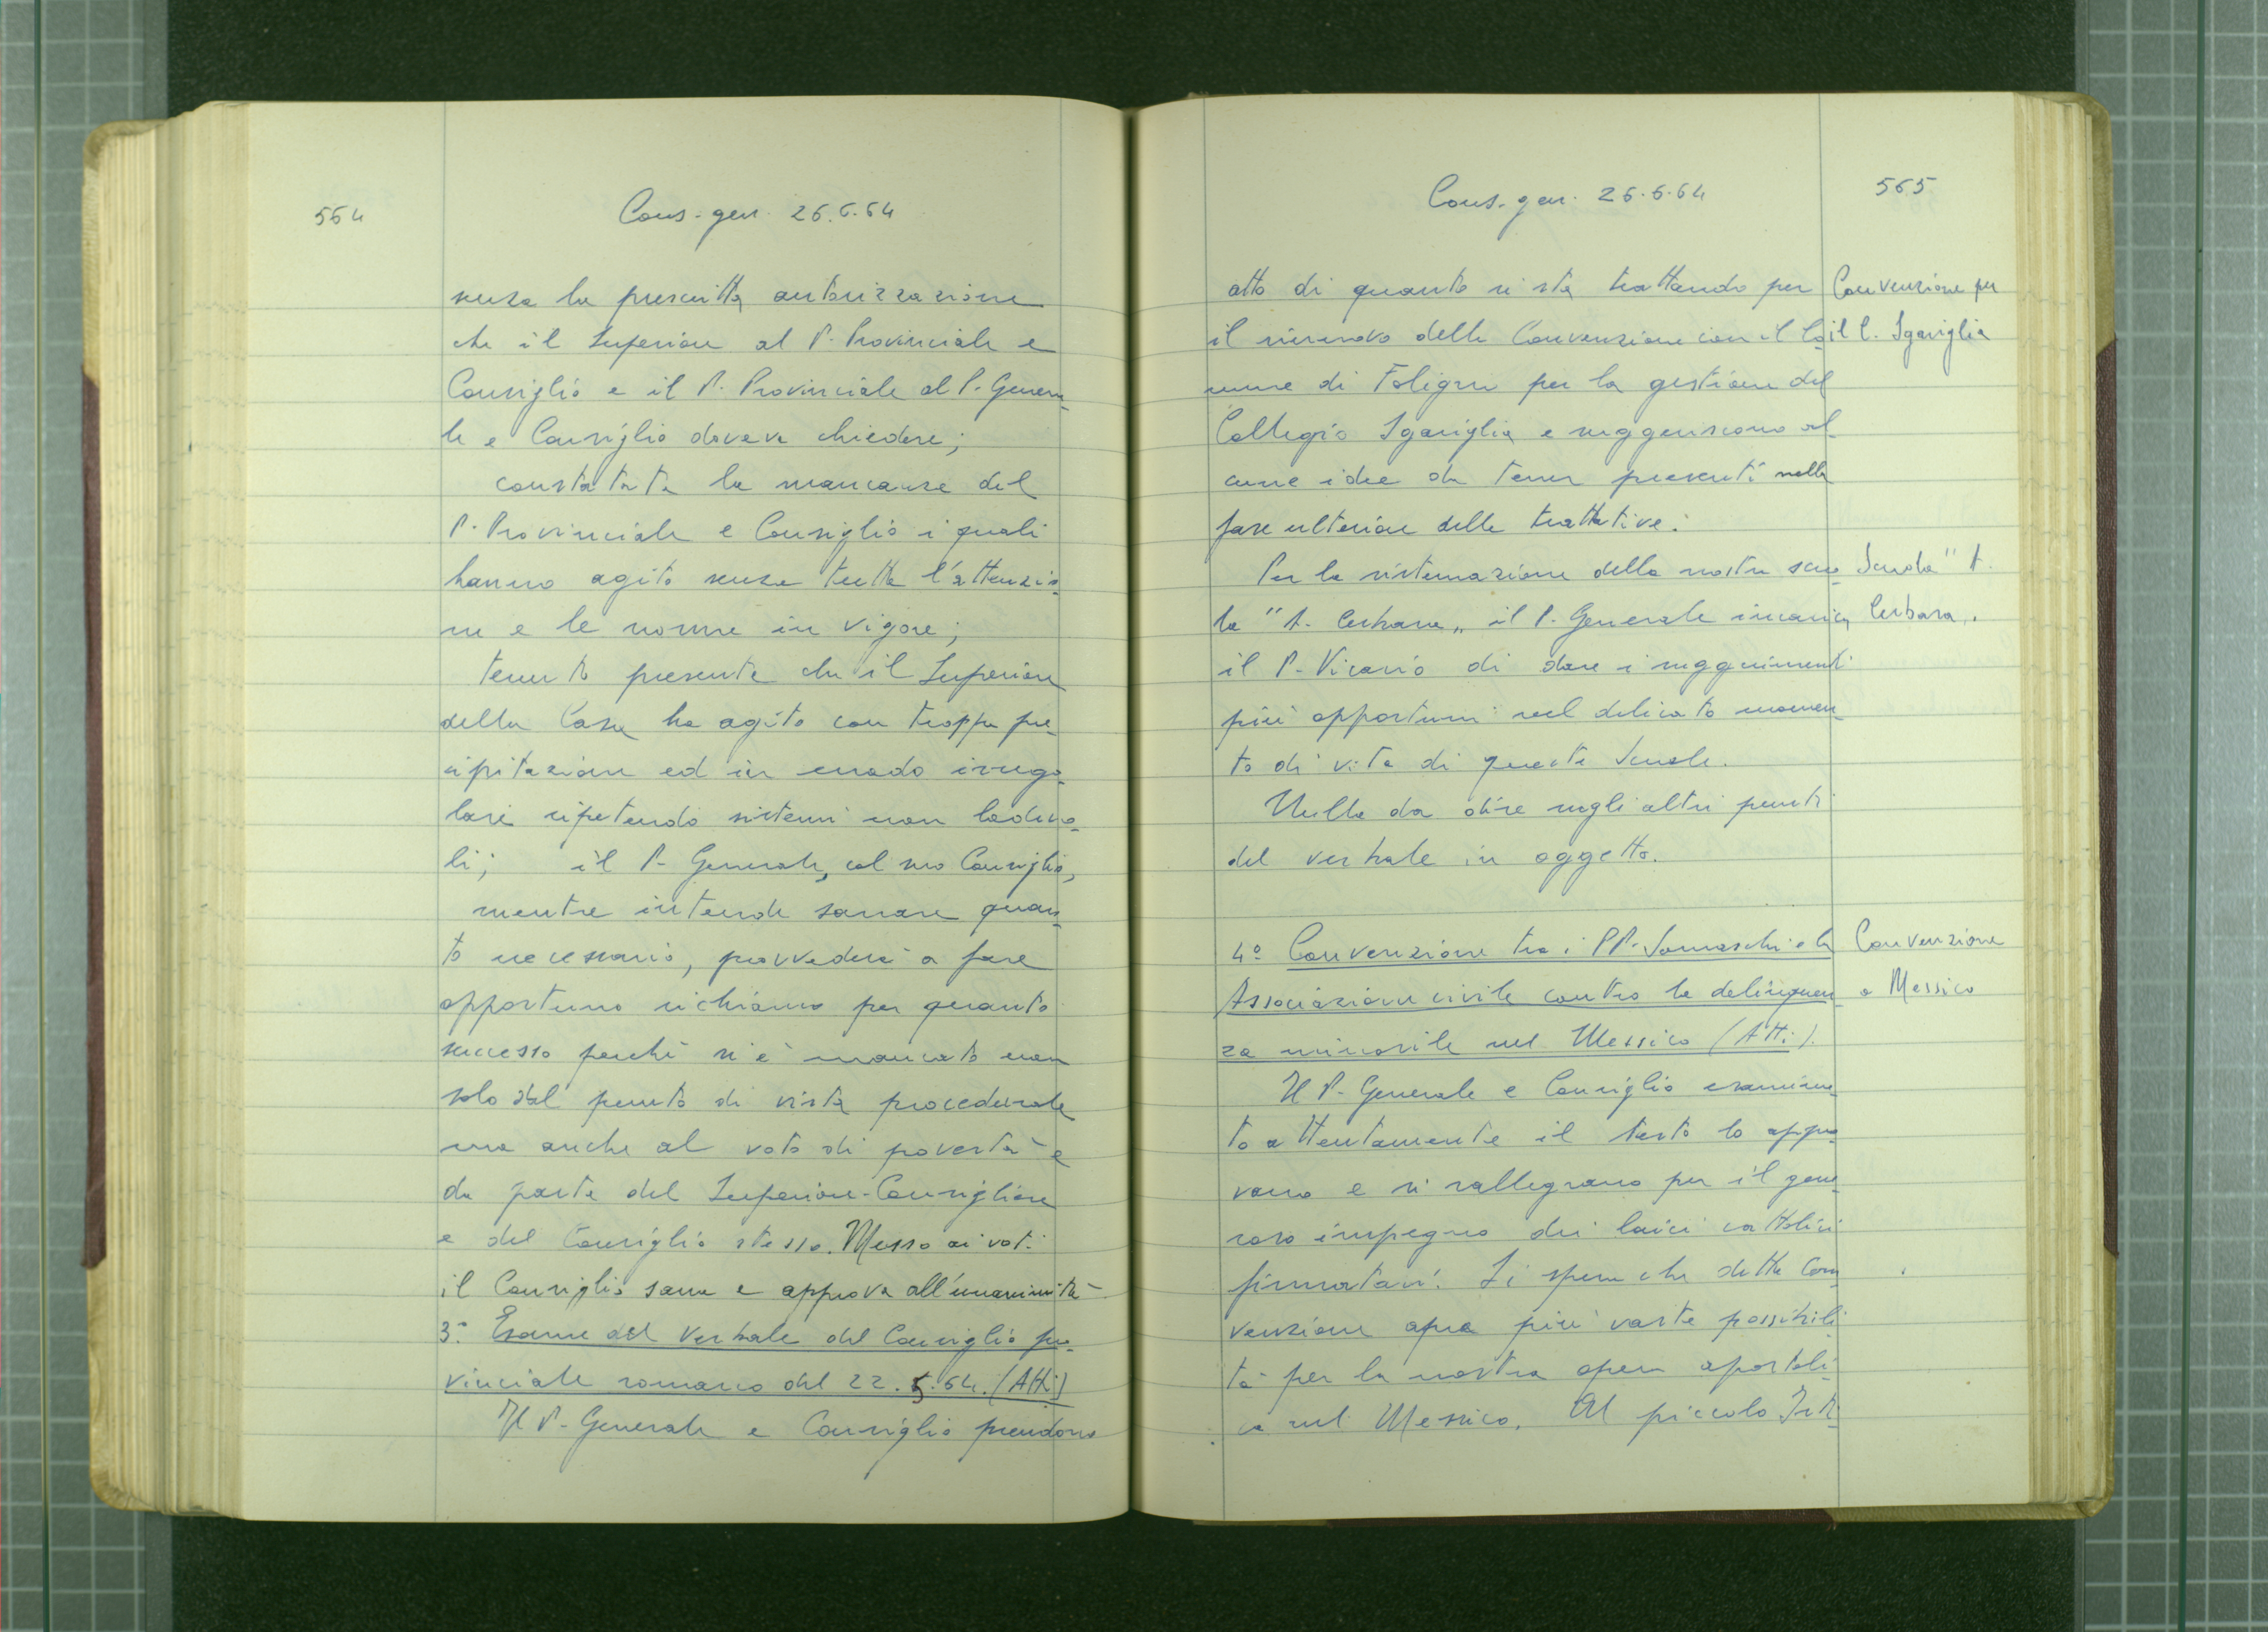 564
Cons. gen. 26.6.64
senza la prescritta autorizzazione
che il Superiore al P. Provinciale e
Consiglio e il P. Provinciale al P. Genera-
le e Consiglio doveva chiedere;
constatata la mancanza del
P. Provinciale e Consiglio i quali
hanno agito senza tutta l'attenzio-
ne e le norme in vigore;
tenuto presente che il Superiore
della Casa ha agito con troppa pre-
cipitazione ed in modo irrego-
lare ripetendo sistemi non lodevo-
li; il P. Generale, col suo Consiglio,
mentre intende sanare quan-
to necessario, provvederà a fare
opportuno richiamo per quanto
successo perché si è mancato non
solo dal punto di vista procedurale
ma anche al voto di povertà e
da parte del Superiore-Consigliere
e del Consiglio stesso. Messo ai voti
il Consiglio sana e approva all'unanimità
3° Esame del Verbale del Consiglio pro-
vinciale romano del 22.5.64. (Atti)
Il P. Generale e Consiglio prendono
Cons. gen. 26.6.64
565
atto di quanto si sta trattando per
il rinnovo della Convenzione con il Co-
mune di Foligno per la gestione del
Collegio Sgariglia e suggeriscono al-
cune idee da tener presenti nella
fase ulteriore delle trattative.
Convenzione per
il C. Sgariglia
Per la sistemazione della nostra scuo-
la "A. Cerbara" il P. Generale incarica
il P. Vicario di dare i suggerimenti
più opportuni nel delicato momen-
to di vita di queste Scuole.
Scuola "A.
Cerbara".
Nulla da dire sugli altri punti
del verbale in oggetto.
4° Convenzione tra i PP. Somaschi e la
Associazione civile contro la delinquen-
za minorile nel Messico (Atti).
Convenzione
a Messico
Il P. Generale e Consiglio esamina-
to attentamente il testo lo appro-
vano e si rallegrano per il gene-
roso impegno dei laici cattolici
firmatari. Si spera che detta Con-
venzione apra più vaste possibili-
tà per la nostra opera apostoli-
ca nel Messico. Al piccolo Isti-